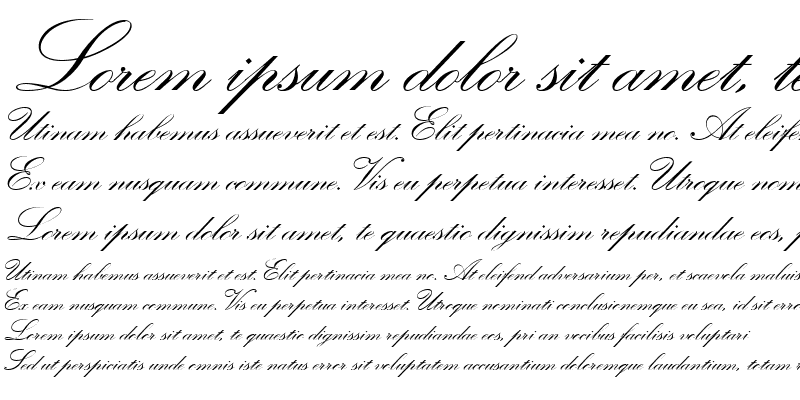 Lorem ipsum dolor sit amet, te
Utinam habemus assueverit et est. Elit pertinacia mea no. At eleife
Ex eam nusquam commune. Vis eu perpetua interesset. Utroque nom
Lorem ipsum dolor sit amet, te quaestio dignissim repudiandae eos, p
Utinam habemus assueverit et est. Elit pertinacia mea no. At eleifend adversarium per, et scaevola maluis
Ex eam nusquam commune. Vis eu perpetua interesset. Utroque nominati conclusionemque eu sea, id sit erro
Lorem ipsum dolor sit amet, te quaestio dignissim repudiandae eos, pri an vocibus facilisis voluptari
Sed ut perspiciatis unde omnis iste natus error sit voluptatem accusantium doloremque laudantium, totam r